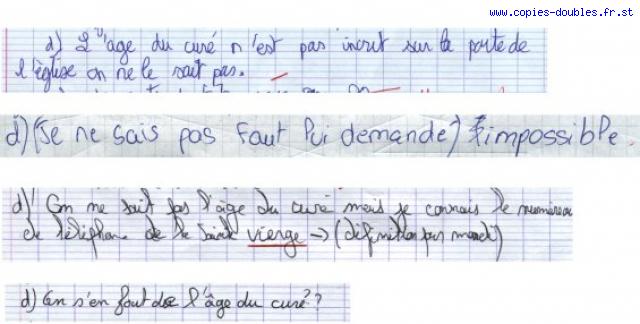 www.copies-doubles.fr.st
d) L'age du curé n'est pas inscrit sur la porte de
l'église on ne le sait pas.
d) (Je ne sais pas faut lui demande) impossible.
d) On ne sait pas l'âge du curé mais je connais le numéreau
de téléphone de la sainte vierge → (définition pas)
d) On s'en fout de l'âge du curé ?